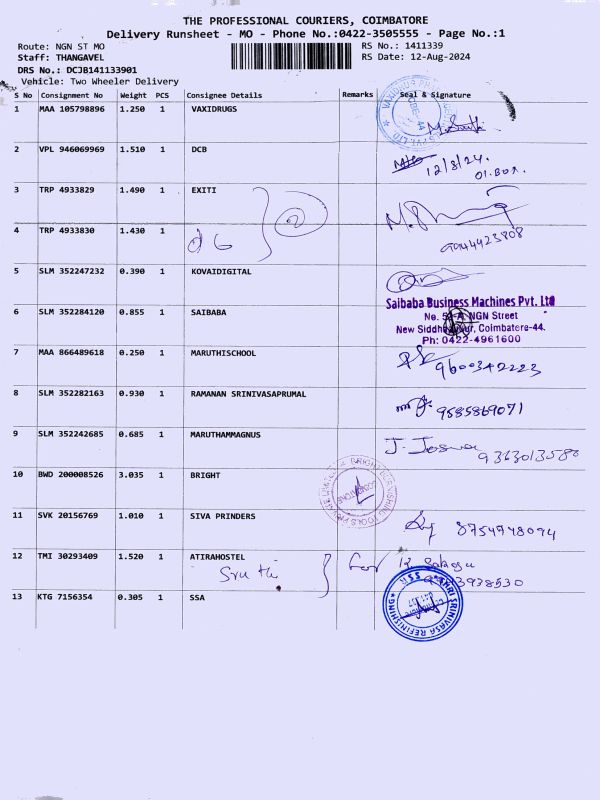 THE PROFESSIONAL COURIERS, COIMBATORE
Delivery Runsheet - MO - Phone No.:0422-3505555 - Page No.:1
Route: NGN ST MO
RS No.: 1411339
Staff: THANGAVEL
RS Date: 12-Aug-2024
DRS No.: DCJB141133901
Vehicle: Two Wheeler Delivery
S No Consignment No Weight PCS Consignee Details Remarks Seal & Signature
1 MAA 105798896 1.250 1 VAXIDRUGS
2 VPL 946069969 1.510 1 DCB
12/8/24.
01.Box.
3 TRP 4933829 1.490 1 EXITI
2
4 TRP 4933830 1.430 1
d G
5 SLM 352247232 0.390 1 KOVAIDIGITAL
6 SLM 352284120 0.855 1 SAIBABA
Saibaba Business Machines Pvt. Ltd
NGN Street
Coimbatore-44.
Ph: 0422-4961600
7 MAA 866489618 0.250 1 MARUTHISCHOOL
9600342223
8 SLM 352282163 0.930 1 RAMANAN SRINIVASAPRUMAL
9585869071
9 SLM 352242685 0.685 1 MARUTHAMMAGNUS
10 BWD 200008526 3.035 1 BRIGHT
11 SVK 20156769 1.010 1 SIVA PRINDERS
8754748094
12 TMI 30293409 1.520 1 ATIRAHOSTEL
Sruthi
13 KTG 7156354 0.305 1 SSA
SHRI SRINIVASA REFINISHING